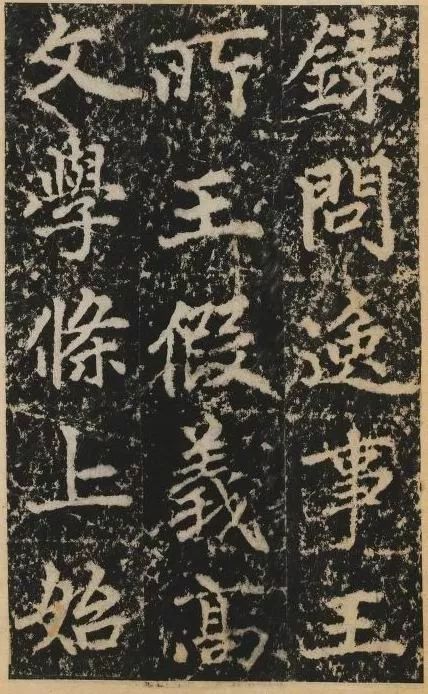 録問逸事王
所王假義高
文學條上始